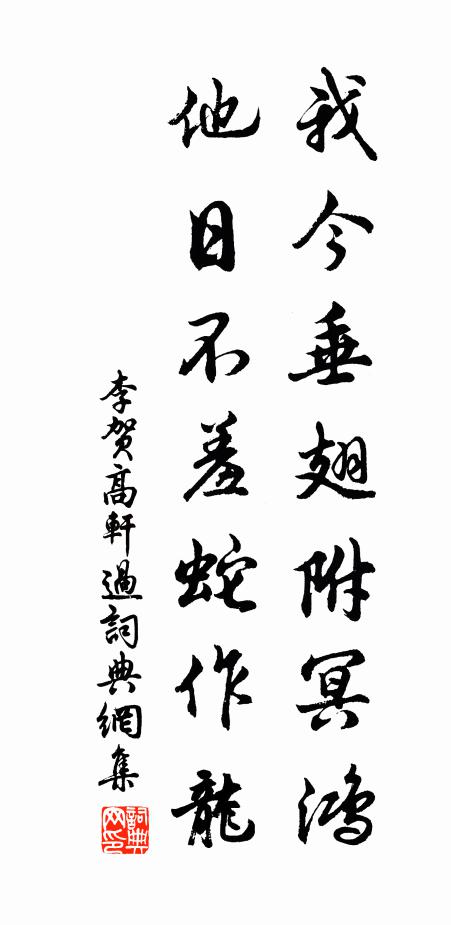 我今垂翅附冥鴻
他日不羞蛇作龍
李贺高軒過詞典網集
詞典网印